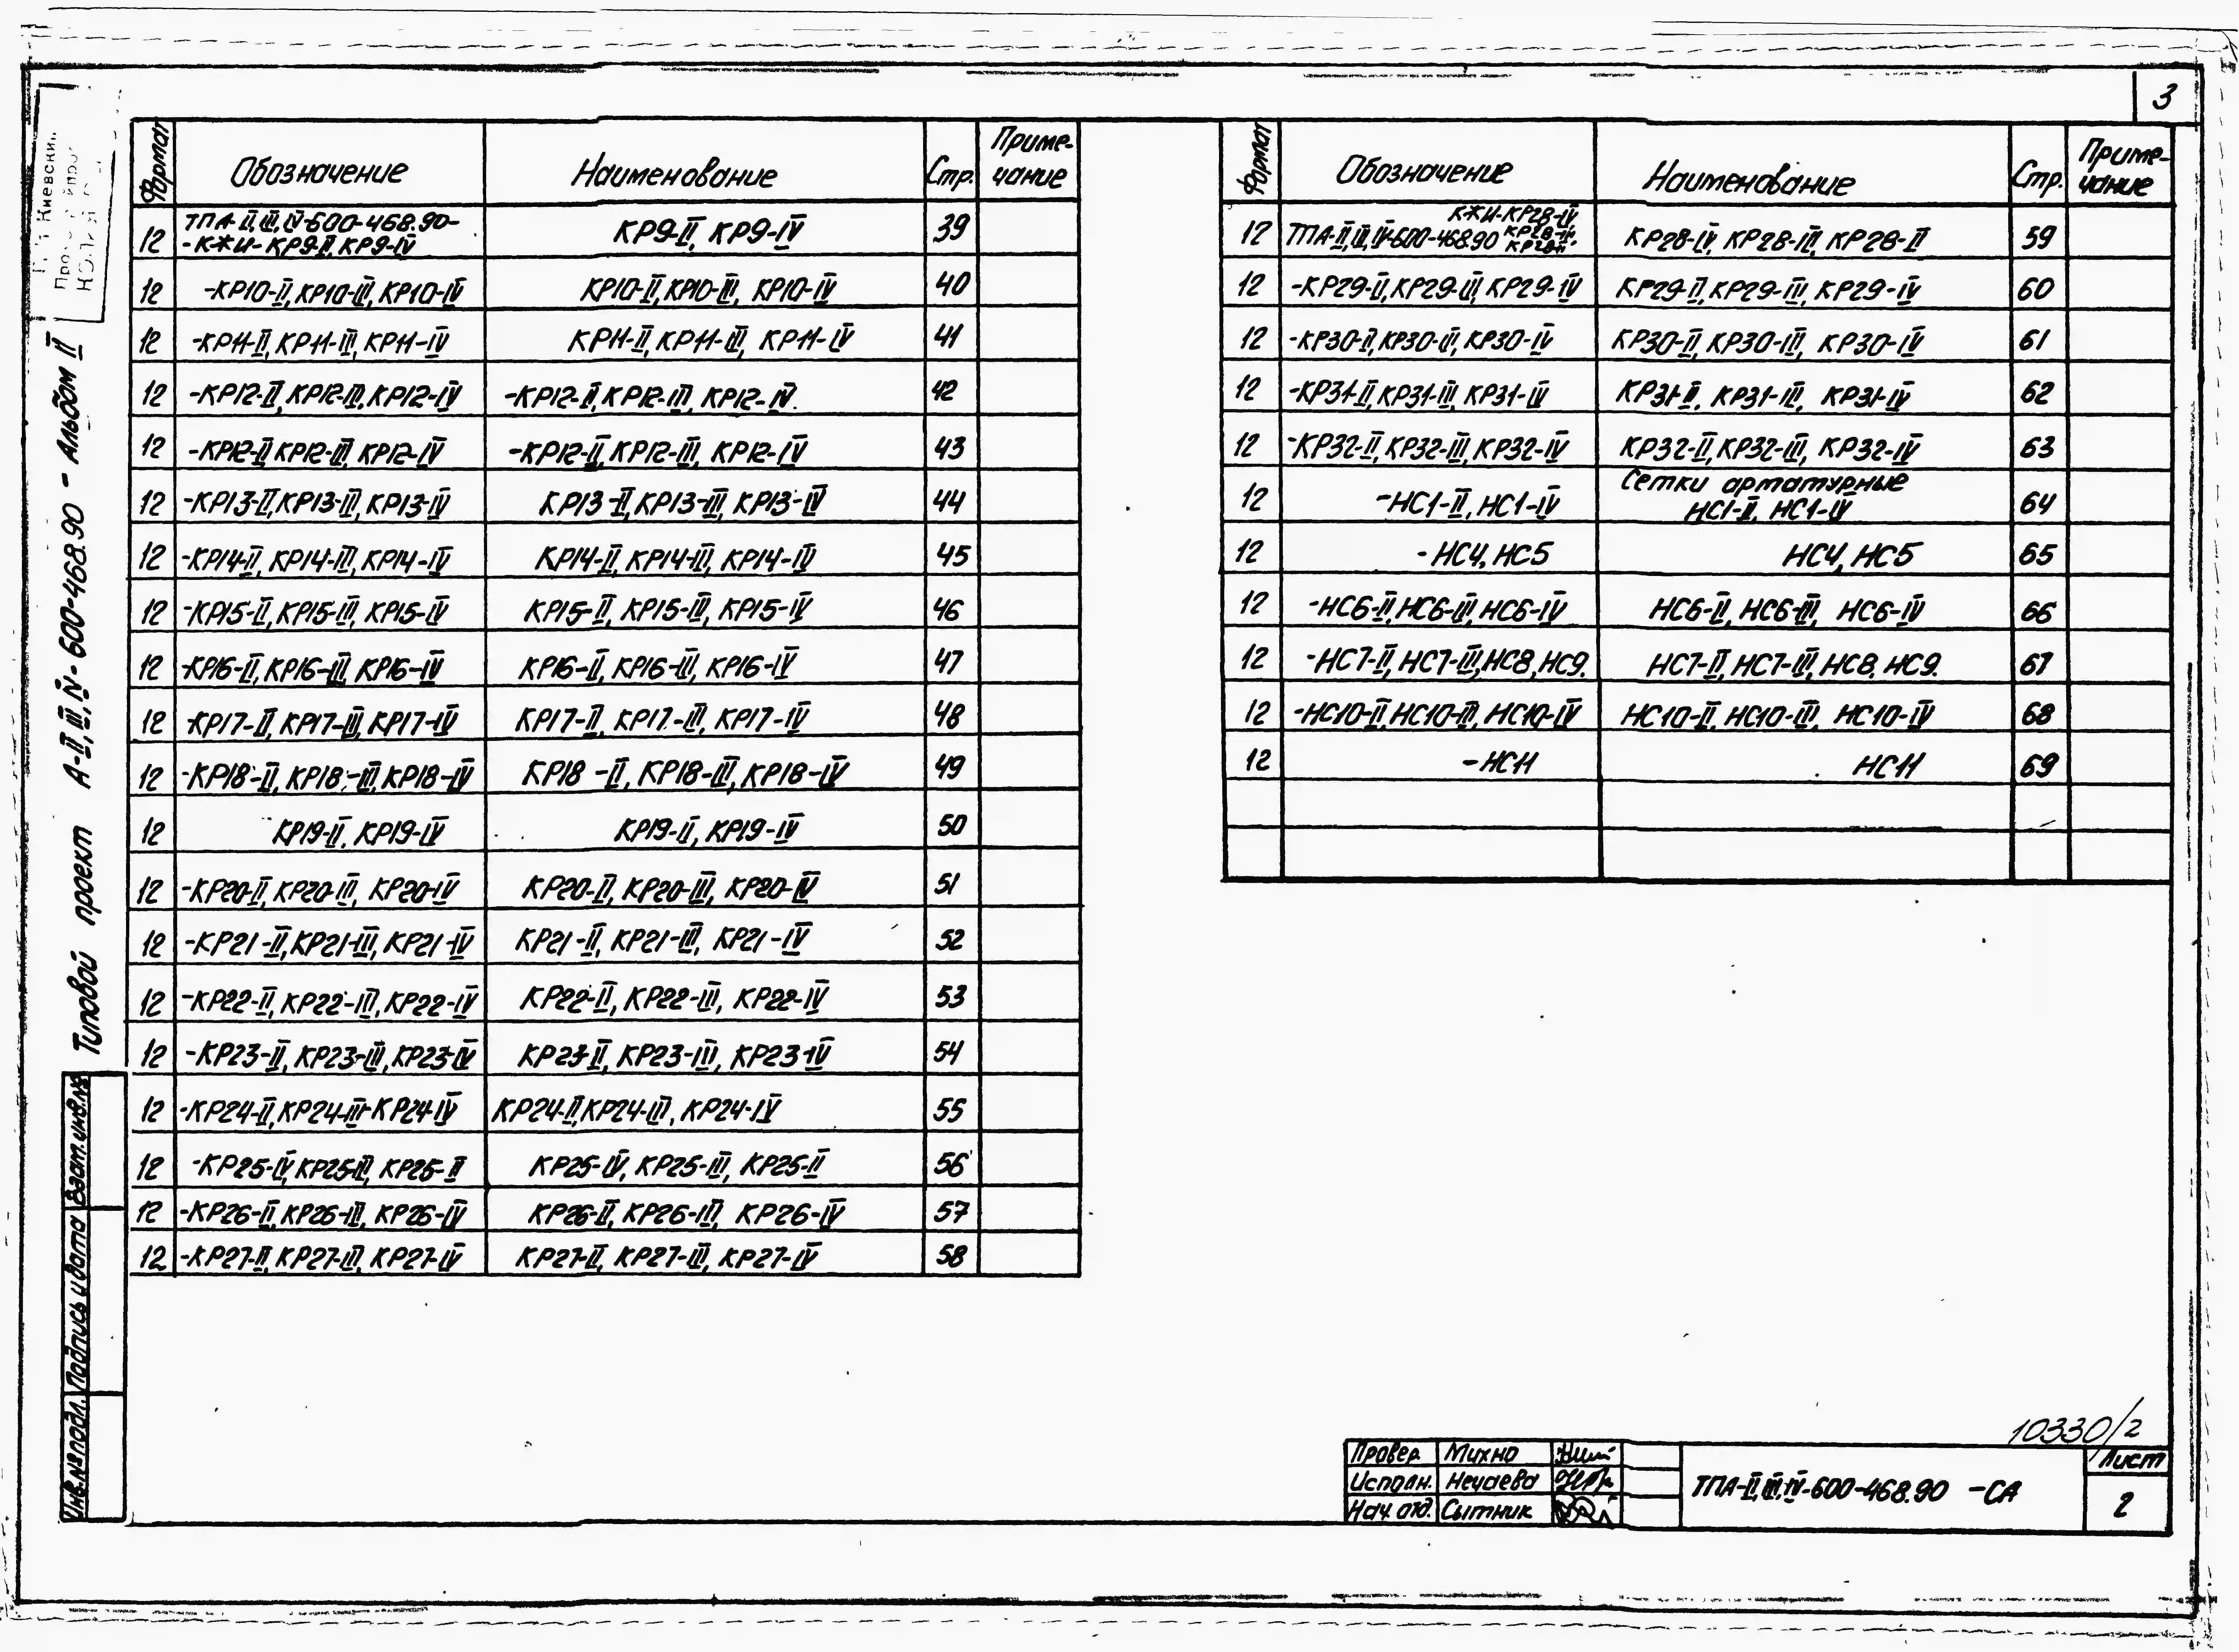 3
Формат Обозначение Наименование Стр. Приме-чание
12 ТПА-II,III,IV-600-468.90-
-КЖИ-КР9-II, КР9-IV КР9-II, КР9-IV 39
12 -КР10-II,КР10-III,КР10-IV КР10-II,КР10-III, КР10-IV 40
12 -КР11-II,КР11-III,КР11-IV КР11-II,КР11-III, КР11-IV 41
12 -КР12-II,КР12-III,КР12-IV -КР12-II,КР12-III, КР12-IV. 42
12 -КР12-II КР12-III, КР12-IV -КР12-II,КР12-III, КР12-IV 43
12 -КР13-II,КР13-III,КР13-IV КР13-II,КР13-III, КР13-IV 44
12 -КР14-II, КР14-III,КР14-IV КР14-II, КР14-III, КР14-IV 45
12 -КР15-II,КР15-III, КР15-IV КР15-II, КР15-III, КР15-IV 46
12 -КР16-II,КР16-III, КР16-IV КР16-II, КР16-III, КР16-IV 47
12 -КР17-II, КР17-III,КР17-IV КР17-II, КР17-III, КР17-IV 48
12 -КР18-II, КР18-III,КР18-IV КР18-II, КР18-III,КР18-IV 49
12 КР19-II, КР19-IV КР19-II, КР19-IV 50
12 -КР20-II,КР20-III, КР20-IV КР20-II, КР20-III, КР20-IV 51
12 -КР21-II,КР21-III,КР21-IV КР21-II, КР21-III, КР21-IV 52
12 -КР22-II, КР22-III,КР22-IV КР22-II, КР22-III, КР22-IV 53
12 -КР23-II, КР23-III,КР23-IV КР23-II, КР23-III, КР23-IV 54
12 -КР24-II,КР24-III-КР24-IV КР24-II,КР24-III, КР24-IV 55
12 -КР25-IV,КР25-III, КР25-II КР25-IV, КР25-III, КР25-II 56
12 -КР26-II,КР26-III, КР26-IV КР26-II, КР26-III, КР26-IV 57
12 -КР27-II, КР27-III, КР27-IV КР27-II, КР27-III, КР27-IV 58
Формат Обозначение Наименование Стр. Приме-чание
12 ТПА-II,III,IV-600-468.90 КЖИ-КР28-IV, КР28-III, КР28-II КР28-IV, КР28-III, КР28-II 59
12 -КР29-II,КР29-III, КР29-IV КР29-II, КР29-III, КР29-IV 60
12 -КР30-II,КР30-III, КР30-IV КР30-II, КР30-III, КР30-IV 61
12 -КР31-II,КР31-III, КР31-IV КР31-II, КР31-III, КР31-IV 62
12 -КР32-II,КР32-III,КР32-IV КР32-II,КР32-III, КР32-IV 63
12 -НС1-II, НС1-IV Сетки арматурные
НС1-II, НС1-IV 64
12 -НС4, НС5 НС4, НС5 65
12 -НС6-II,НС6-III,НС6-IV НС6-II, НС6-III, НС6-IV 66
12 -НС7-II,НС7-III,НС8,НС9. НС7-II,НС7-III,НС8, НС9. 67
12 -НС10-II,НС10-III, НС10-IV НС10-II, НС10-III, НС10-IV 68
12 -НС11 НС11 69
Типовой проект А-II,III,IV-600-468.90 - Альбом II
Взам.инв.№
Подпись и дата
Инв.№ подл.
10330/2
Провер. Михно
Исполн. Нечаева
Нач. отд. Сытник
ТПА-II,III,IV-600-468.90 -СА
Лист
2